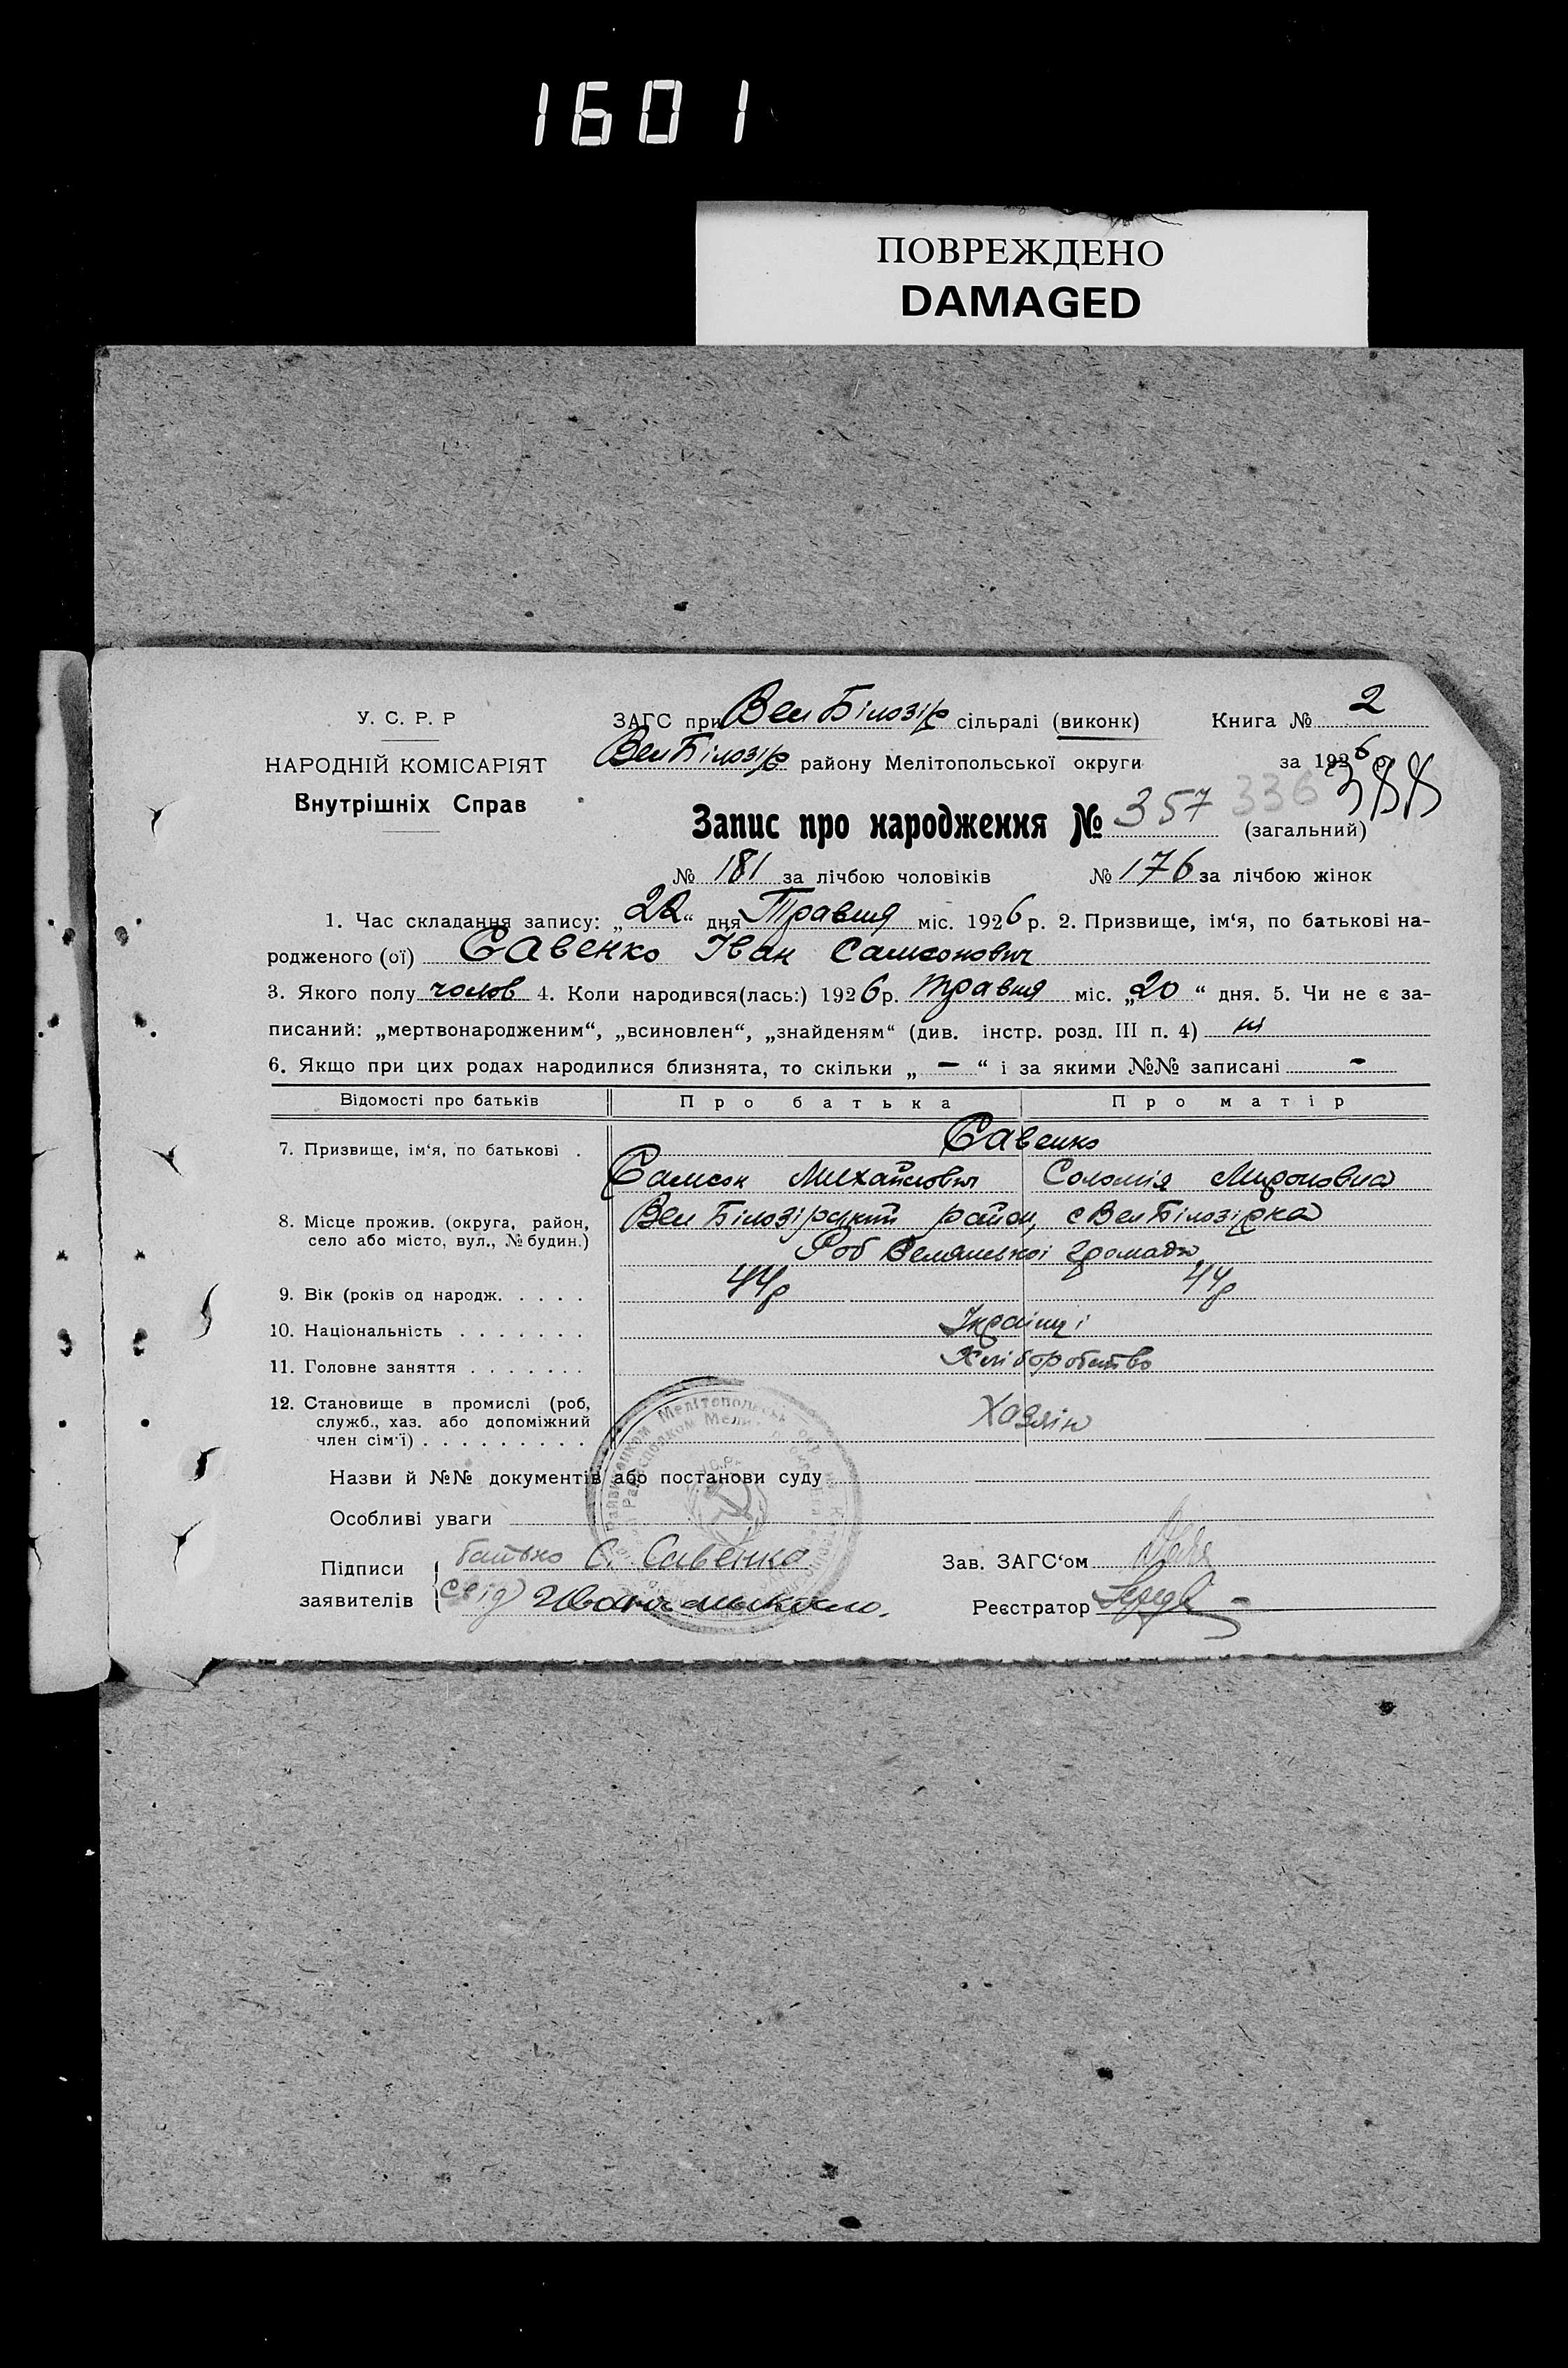 1601
ПОВРЕЖДЕНО
DAMAGED
У. С. Р. Р
НАРОДНІЙ КОМІСАРІЯТ
Внутрішніх Справ
ЗАГС при Вел Білозір сільраді (виконк)
Книга № 2
Вел Білозір району Мелітопольської округи
за 1926 р.
388
Запис про народження № 357 336 (загальний)
№ 181 за лічбою чоловіків № 176 за лічбою жінок
1. Час складання запису: „22“ дня Травня міс. 1926 р. 2. Призвище, ім‘я, по батькові на-
родженого (ої) Савенко Іван Самсонович
3. Якого полу чолов 4. Коли народився(лась:) 1926 р. травня міс. „20“ дня. 5. Чи не є за-
писаний: „мертвонародженим“, „всиновлен“, „знайденям“ (див. інстр. розд. III п. 4) ні
6. Якщо при цих родах народилися близнята, то скільки „ - “ і за якими №№ записані -
Відомості про батьків Про батька Про матір
7. Призвище, ім‘я, по батькові . Савенко
Самсон Михайлович Соломія Мироновна
8. Місце прожив. (округа, район,
село або місто, вул., № будин.)
Вел Білозірський район, с Вел Білозірка
громади
9. Вік (років од народж. . . . . 44р 44р
10. Національність . . . . . . . Українці
11. Головне заняття . . . . . . . Хліборобство
12. Становище в промислі (роб,
служб., хаз. або допоміжний
член сім‘ї) . . . . . . . . . Хазяін
Назви й №№ документів або постанови суду
Особливі уваги
Підписи
заявителів
батько С. Савенко
свід
Зав. ЗАГС‘ом
Реєстратор